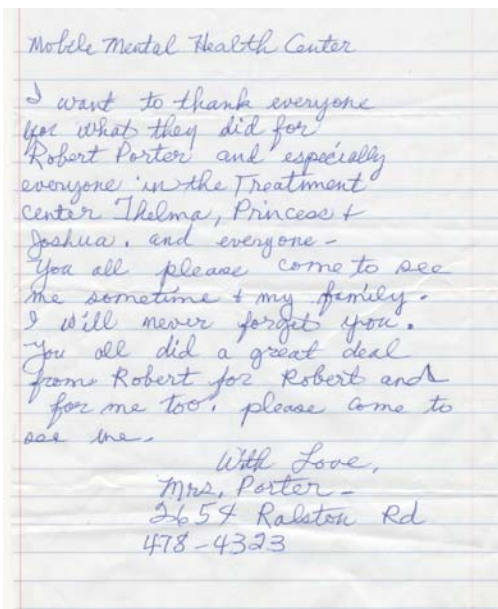 Mobile Mental Health Center
I want to thank everyone
for what they did for
Robert Porter and especially
everyone in the Treatment
center Thelma, Princess +
Joshua. and everyone -
You all please come to see
me sometime + my family.
I will never forget you.
You all did a great deal
from Robert for Robert and
for me too. please come to
see me.
With Love,
Mrs. Porter -
2654 Ralston Rd
478-4323